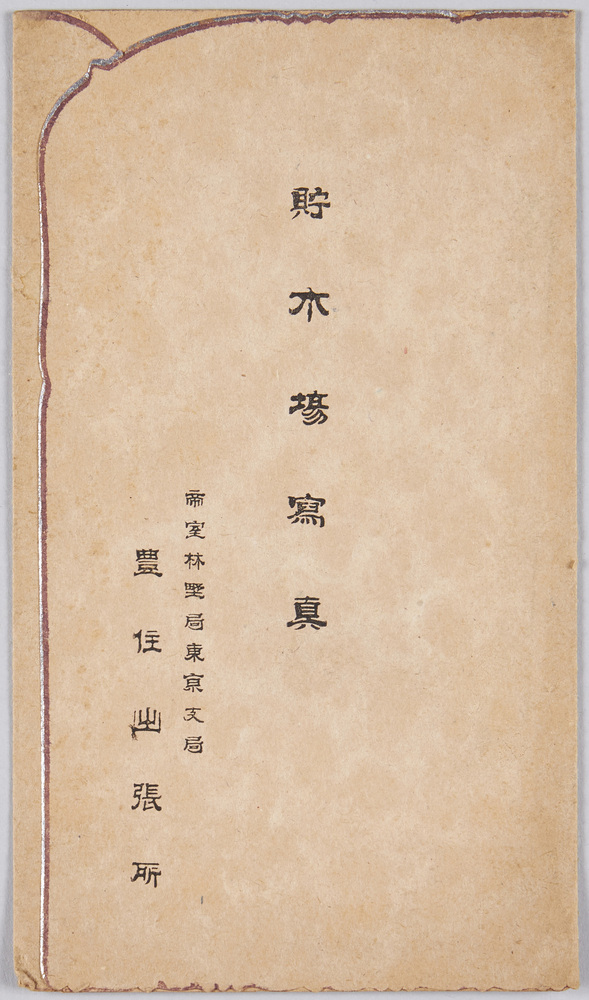 貯木場寫真
帝室林野局東京支局
豊住出張所